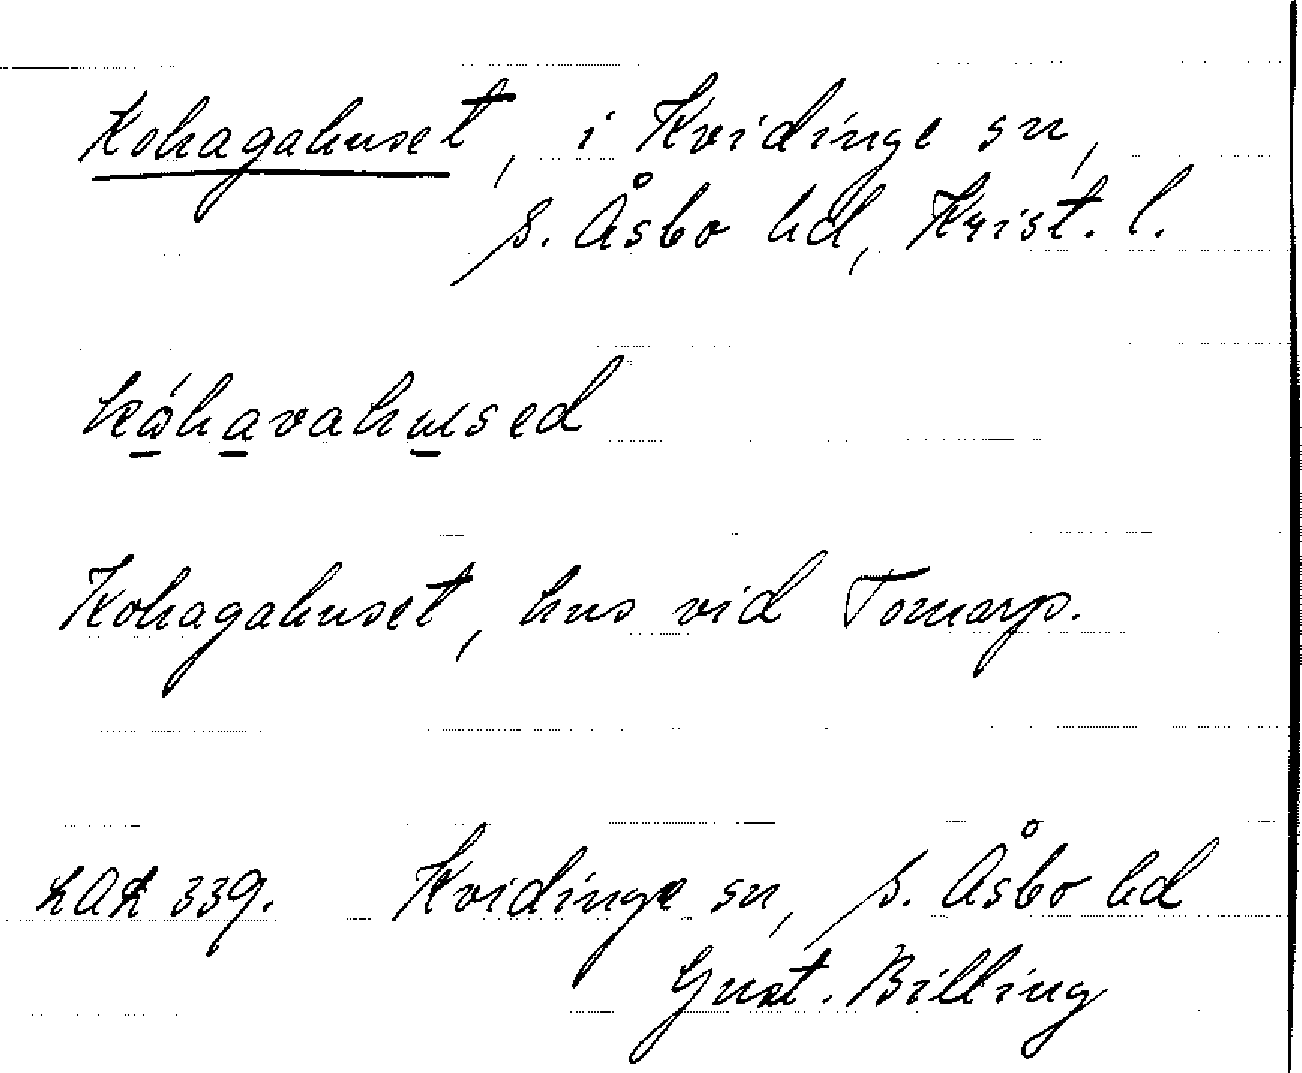 Kohagahuset, i Kvidinge sn,
S. Åsbo hd, Krist. l.
kóhavahused
Kohagahuset, hus vid Tomarp.
LAL 339. Kvidinge sn, S. Åsbo hd
Gust. Billing